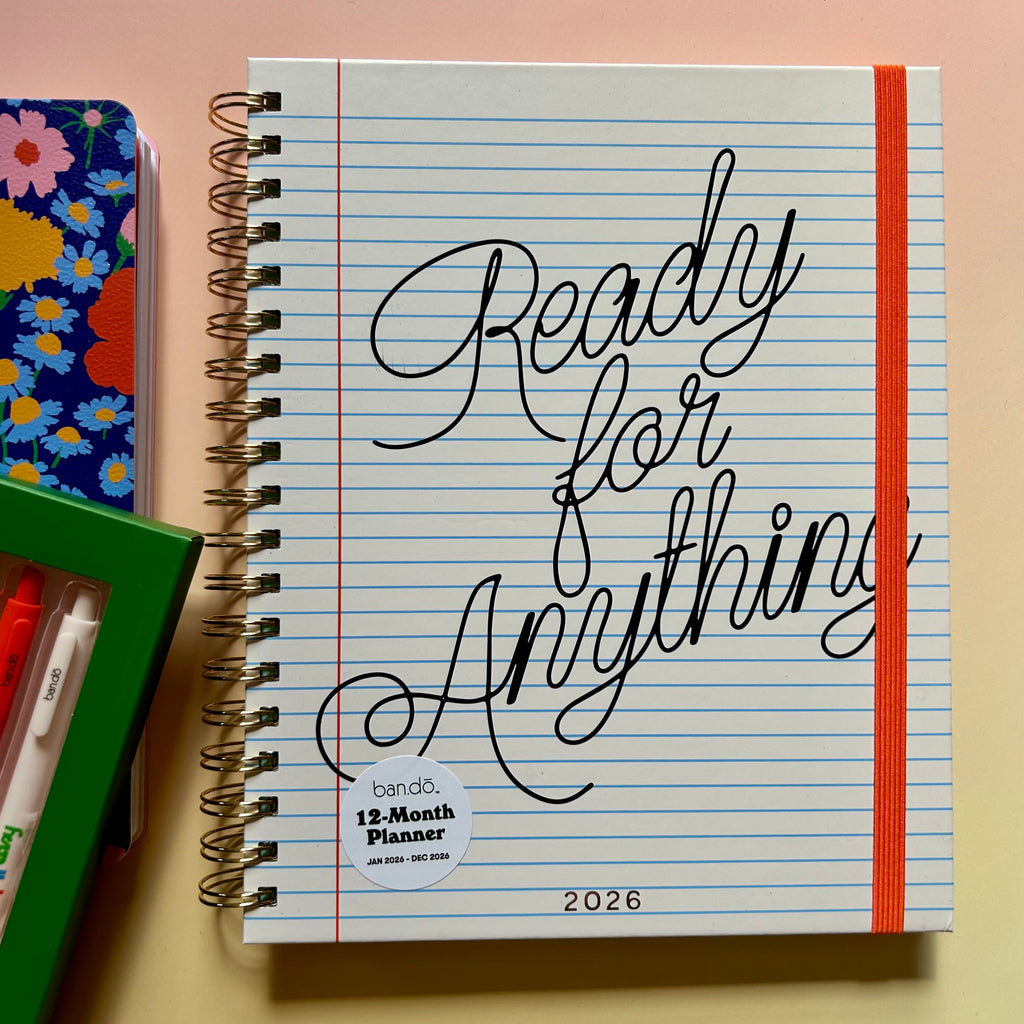 Ready
for
Anything
ban.dō™
12-Month
Planner
JAN 2026 - DEC 2026
2026
ban.dō
ban.dō